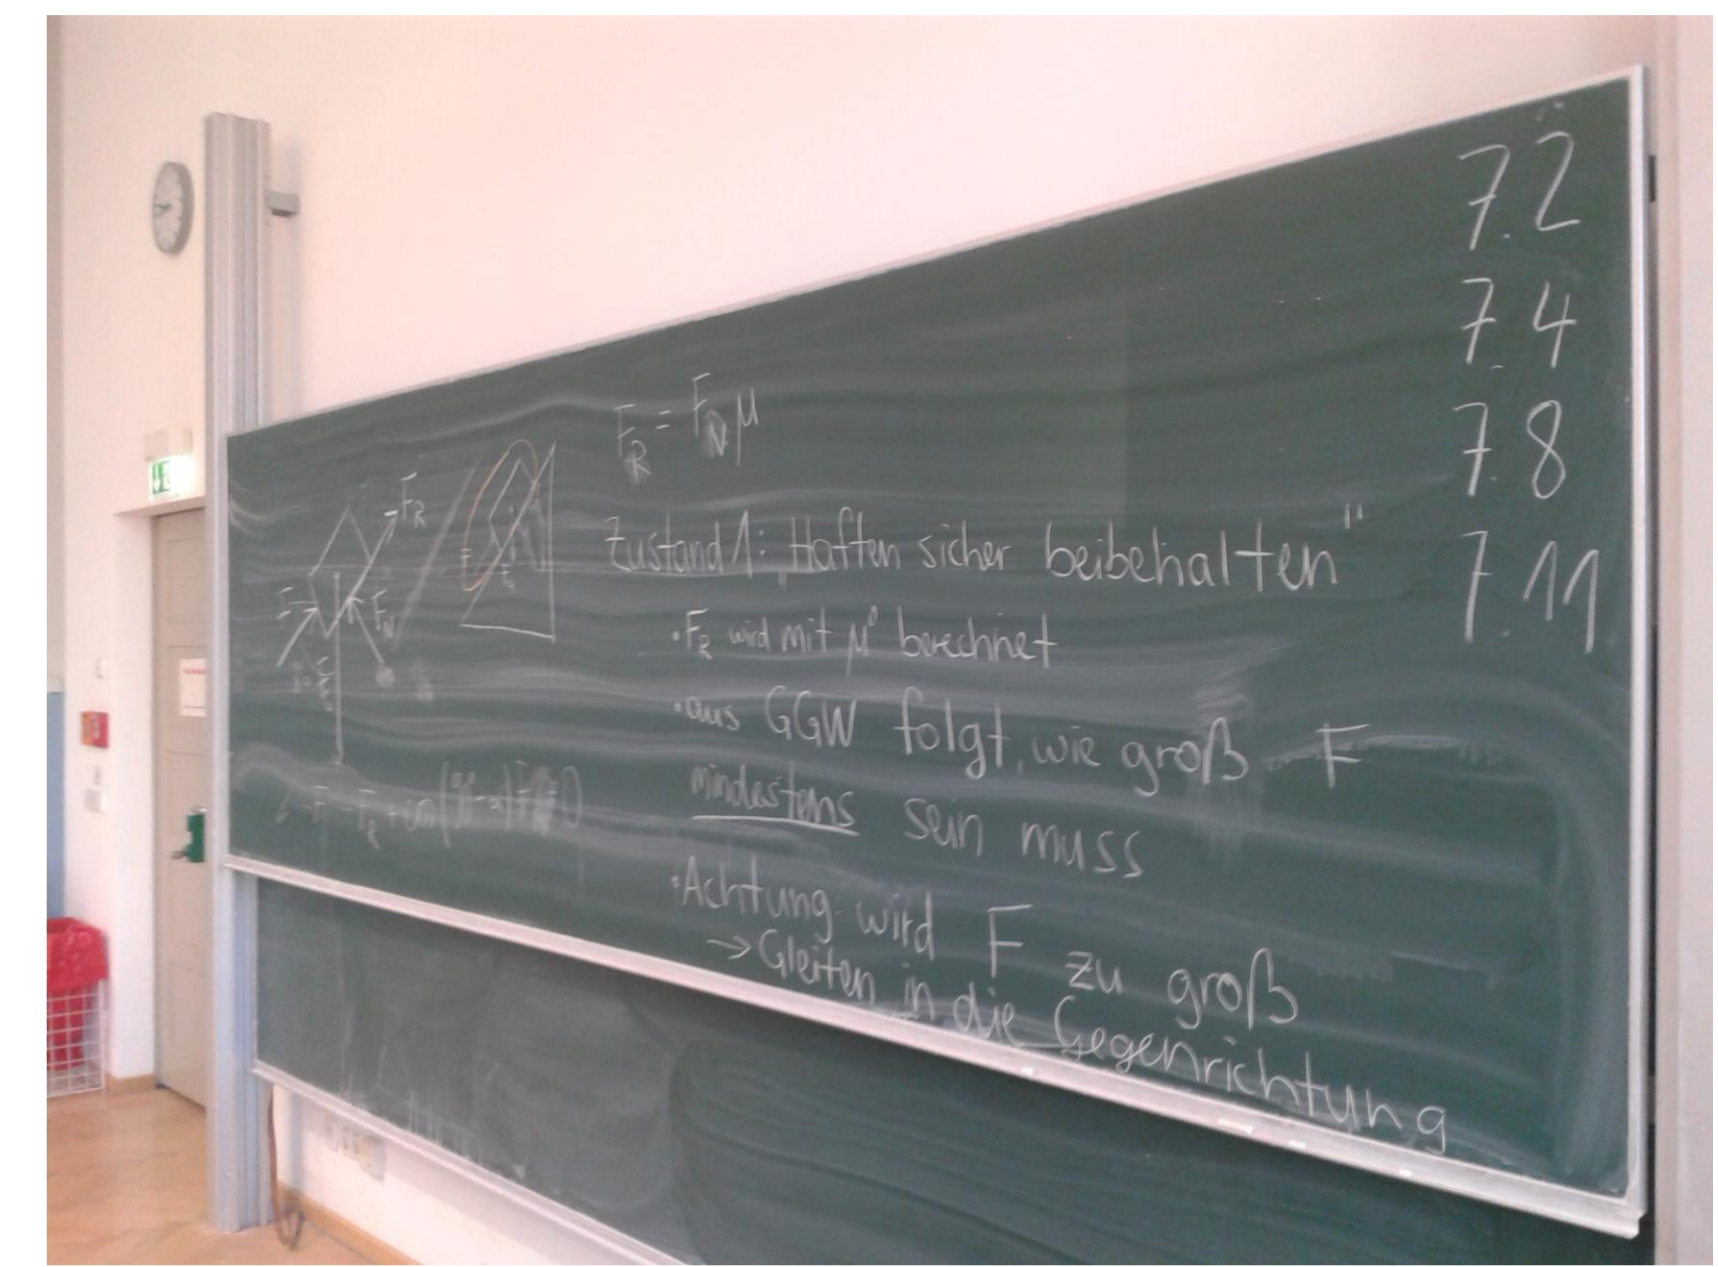 7.2
7.4
7.8
7.11
F_R = F_N μ
F_R
F_N
F
Zustand 1: „Haften sicher beibehalten"
• F_R wird mit μ⁰ berechnet
• aus GGW folgt, wie groß F
mindestens sein muss
• Achtung: wird F zu groß
→ Gleiten in die Gegenrichtung